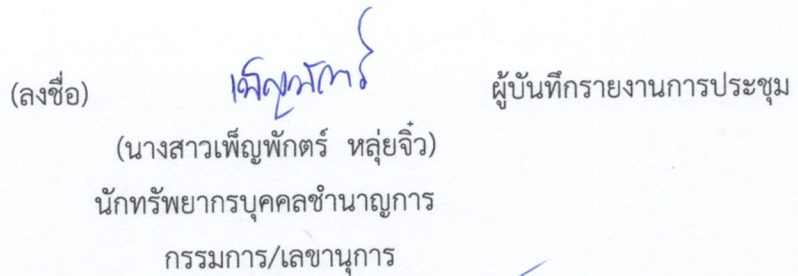 (ลงชื่อ) เพ็ญพักตร์ ผู้บันทึกรายงานการประชุม
(นางสาวเพ็ญพักตร์ หลุ่ยจิ๋ว)
นักทรัพยากรบุคคลชำนาญการ
กรรมการ/เลขานุการ